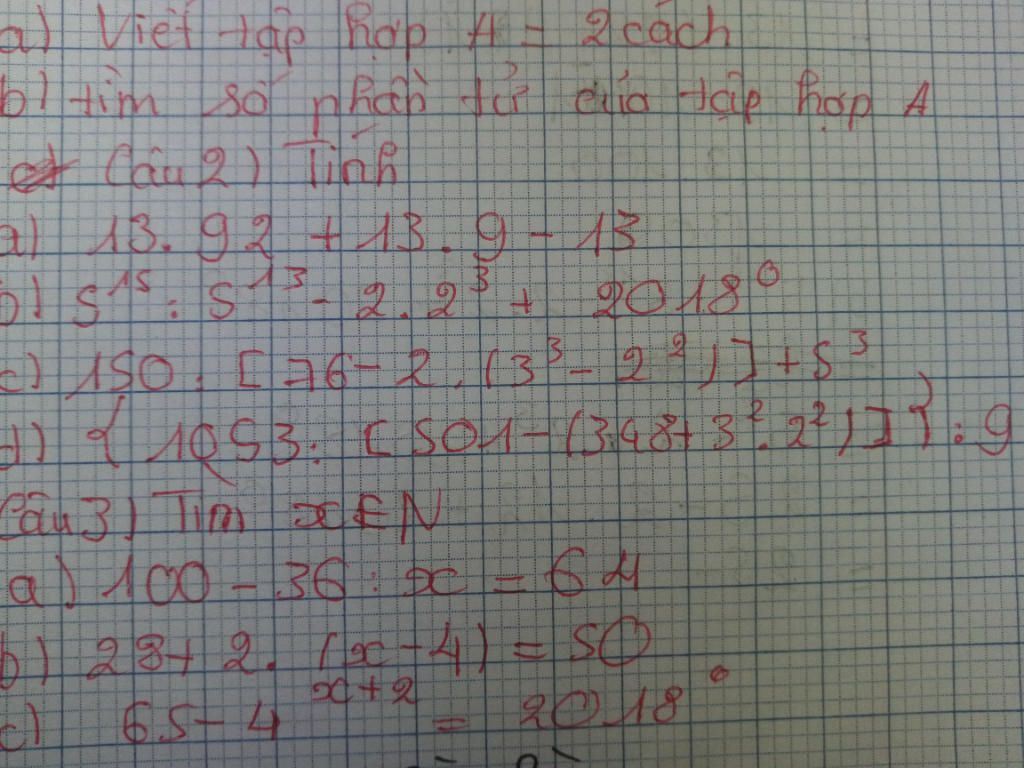 a) Viết tập hợp A = 2 cách
b) tìm số phần tử của tập hợp A
Câu 2) Tính
a) 13. 92 + 13. 9 - 13
b) 5¹⁵ : 5¹³ - 2. 2³ + 2018⁰
c) 150 : [ 76 - 2. (3³ - 2²)] + 5³
d) { 1053 : [ 501 - (348 + 3². 2²)] } : 9
Câu 3) Tìm x ∈ N
a) 100 - 36 : x = 64
b) 28 + 2. (x - 4) = 50
c) 65 - 4ˣ⁺² = 2018⁰